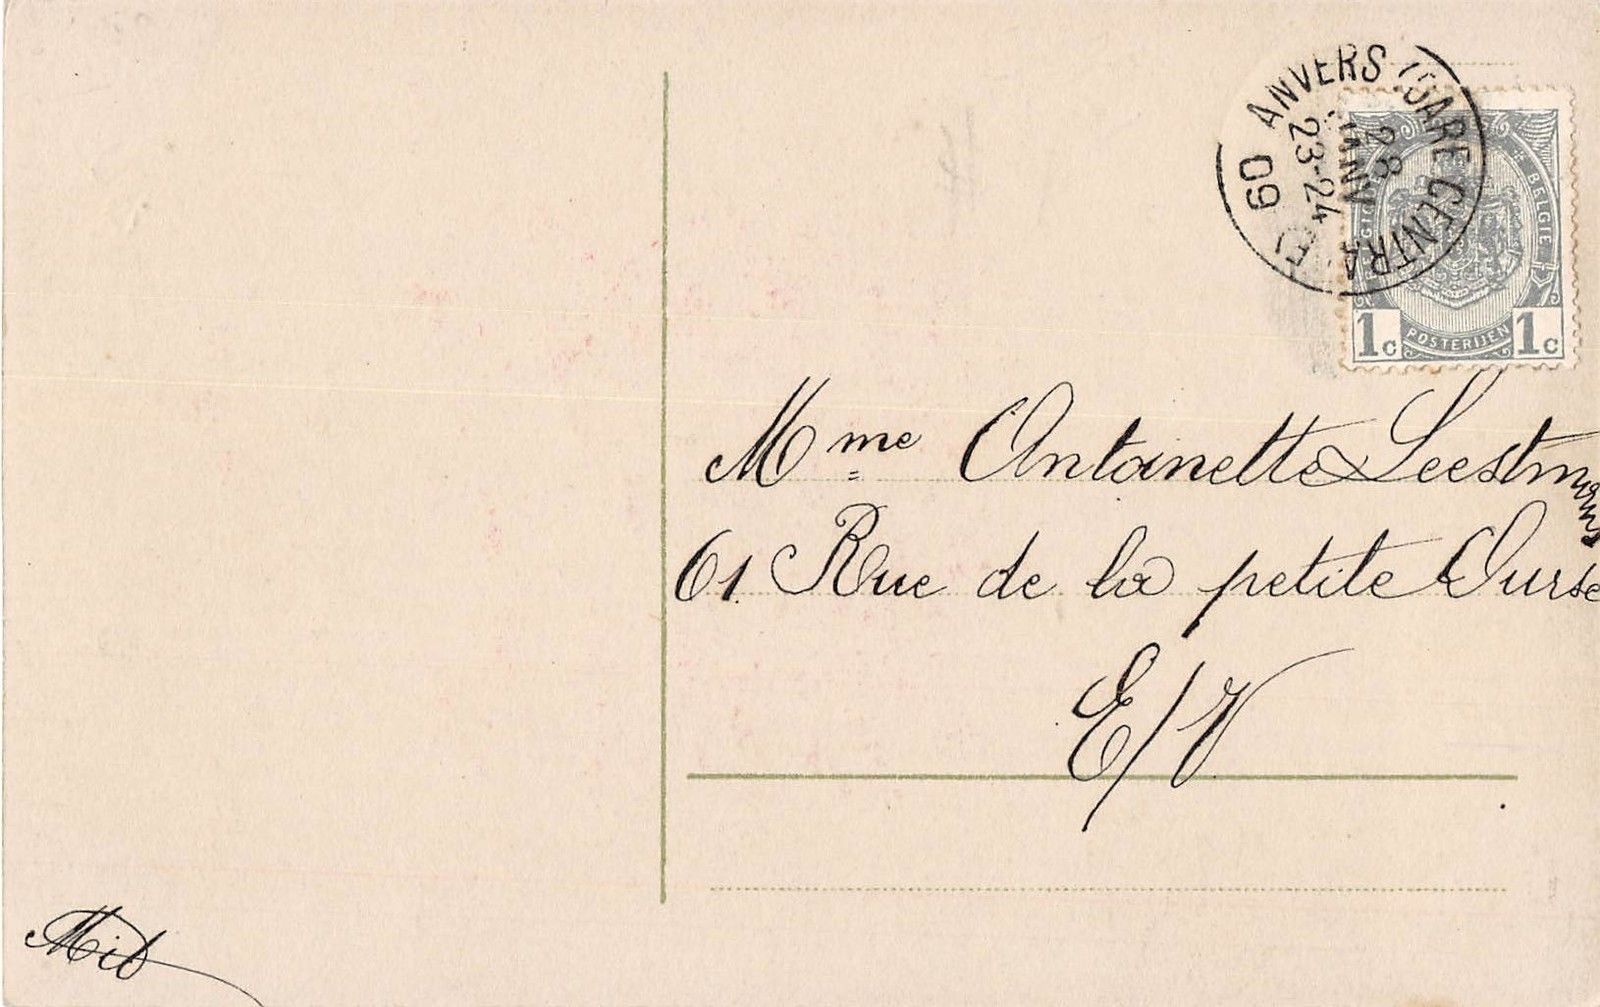 ANVERS (GARE CENTRALE)
28
JANV
23-24
09
BELGIE
POSTERIJEN
1c 1c
Mme Antoinette Leestmans
61 Rue de la petite Ourse
E/V
Mib